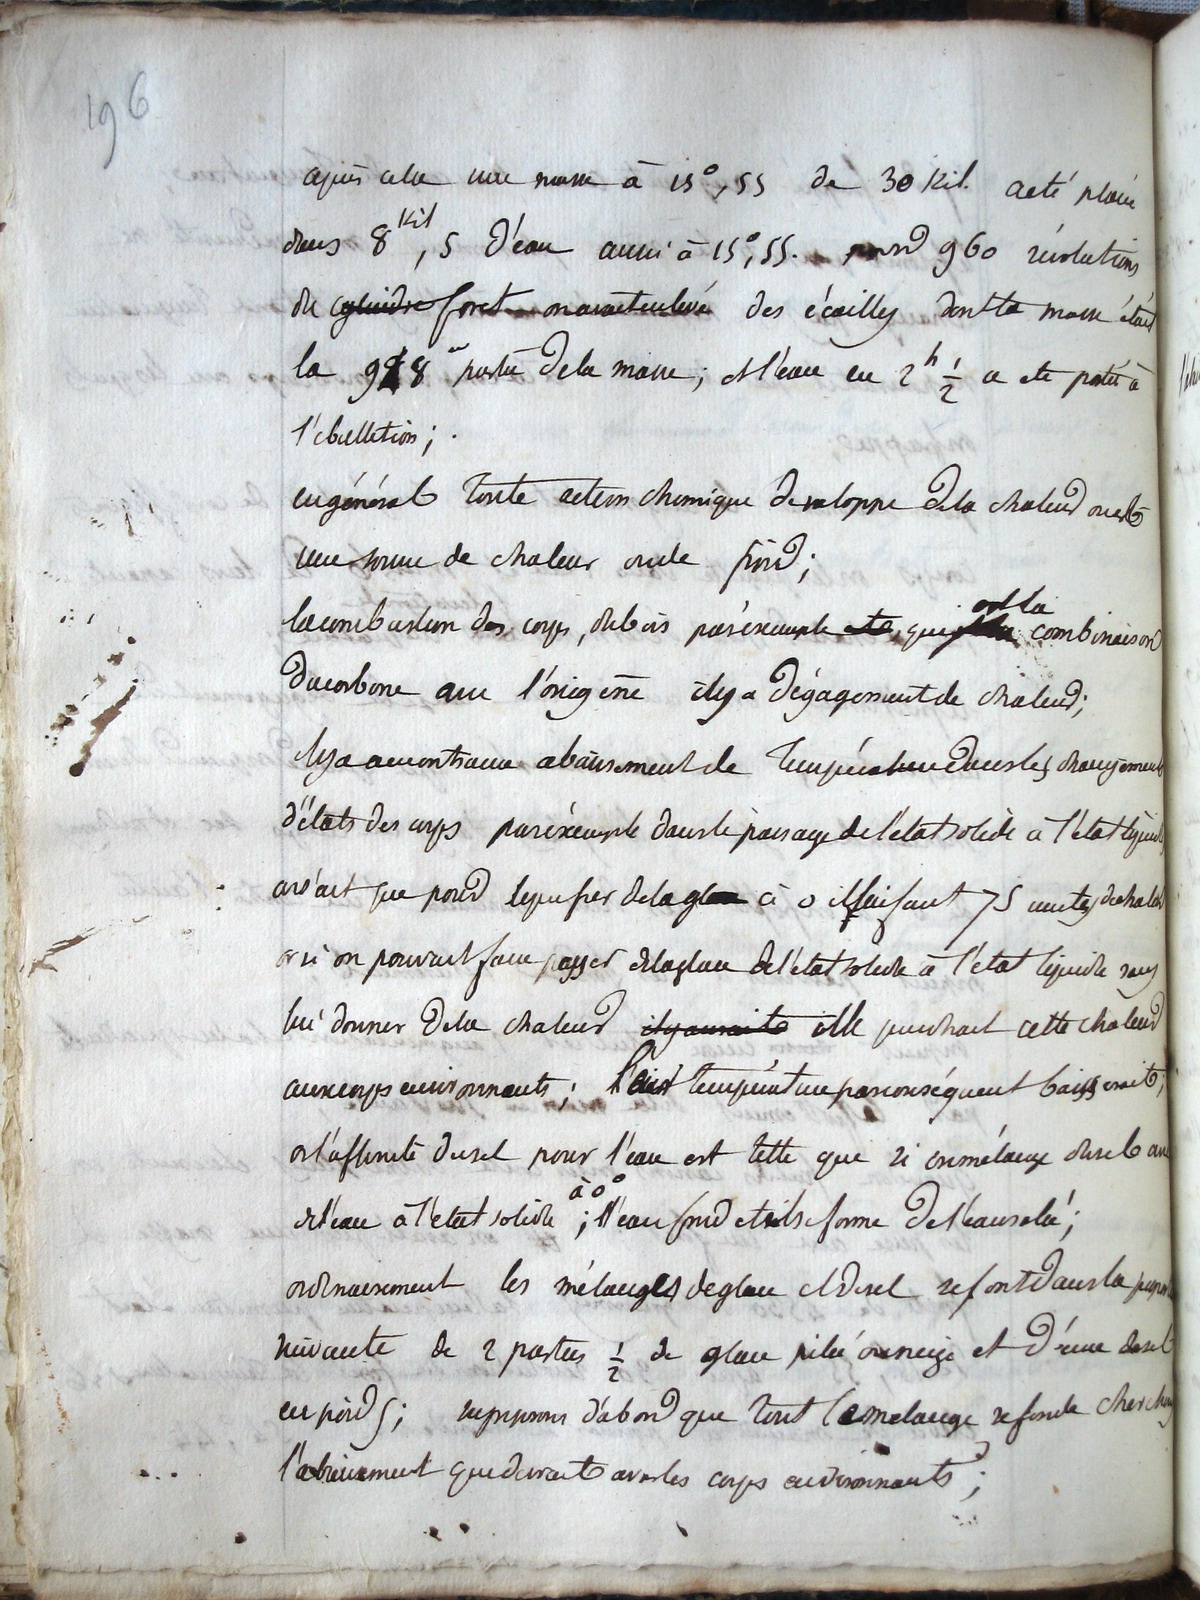 196
après cela une masse à 15°,55 de 30 Kil. a été placée
dans 8 Kil, 5 d'eau aussi à 15°,55. pend 960 révolutions
du cylindre foret on avait enlevé des écailles dont la masse était
la 948e partie de la masse; et l'eau en 2h 1/2 a été portée à
l'ébullition;
en général toute action chimique developpe de la chaleur ou est
une source de chaleur ou de froid;
la combustion des corps, du bois par éxemple qui est la combinaison
du carbone avec l'oxigène il y a dégagement de chaleur;
il y a au contraire abaissement de température dans les changements
d'états des corps par éxemple dans le passage de l'état solide à l'état liquide
on sait que pour liquefier de la glace à 0 il faut 75 unités de chaleur
or si on pouvait faire passer de la glace de l'état solide à l'état liquide sans
lui donner de la chaleur il y aurait elle prendrait cette chaleur
aux corps environnants; température par conséquent baisserait;
or l'affinité du sel pour l'eau est telle que si on mélange du sel avec
de l'eau à l'état solide à 0°; l'eau fond et il se forme de l'eau salée;
ordinairement les mélanges de glace et de sel se font dans la
suivante de 2 parties 1/2 de glace pilée ou neige et d'une de sel
en poids; supposons d'abord que tout le melange se fonde cherchons
l'abaissement que devrait avoir les corps environnants;